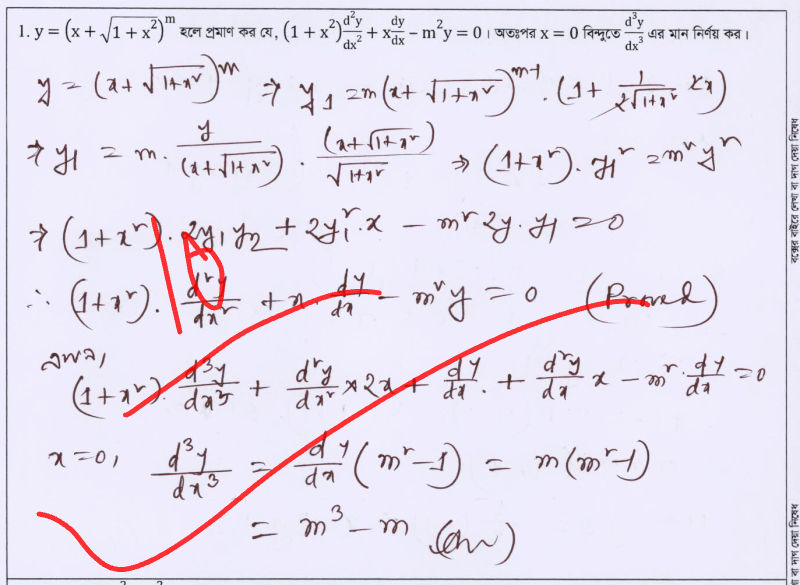 1. y = (x + √(1 + x²))^m হলে প্রমাণ কর যে, (1 + x²) d²y/dx² + x dy/dx − m²y = 0 । অতঃপর x = 0 বিন্দুতে d³y/dx³ এর মান নির্ণয় কর।
y = (x + √(1+x²))^m ⇒ y₁ = m(x + √(1+x²))^(m-1) . (1 + 1/(2√(1+x²)) 2x)
⇒ y₁ = m . y/(x + √(1+x²)) . (x + √(1+x²))/√(1+x²) ⇒ (1+x²) . y₁² = m²y²
⇒ (1+x²) . 2y₁y₂ + 2y₁² . x − m² 2y . y₁ = 0
∴ (1+x²) . d²y/dx² + x . dy/dx − m²y = 0 (Proved)
এখন,
(1+x²) . d³y/dx³ + d²y/dx² × 2x + dy/dx . + d²y/dx x − m² . dy/dx = 0
x = 0, d³y/dx³ = dy/dx (m² − 1) = m(m² − 1)
= m³ − m (Ans)
বক্সের বাইরে লেখা বা দাগ দেয়া নিষেধ
বা দাগ দেয়া নিষেধ